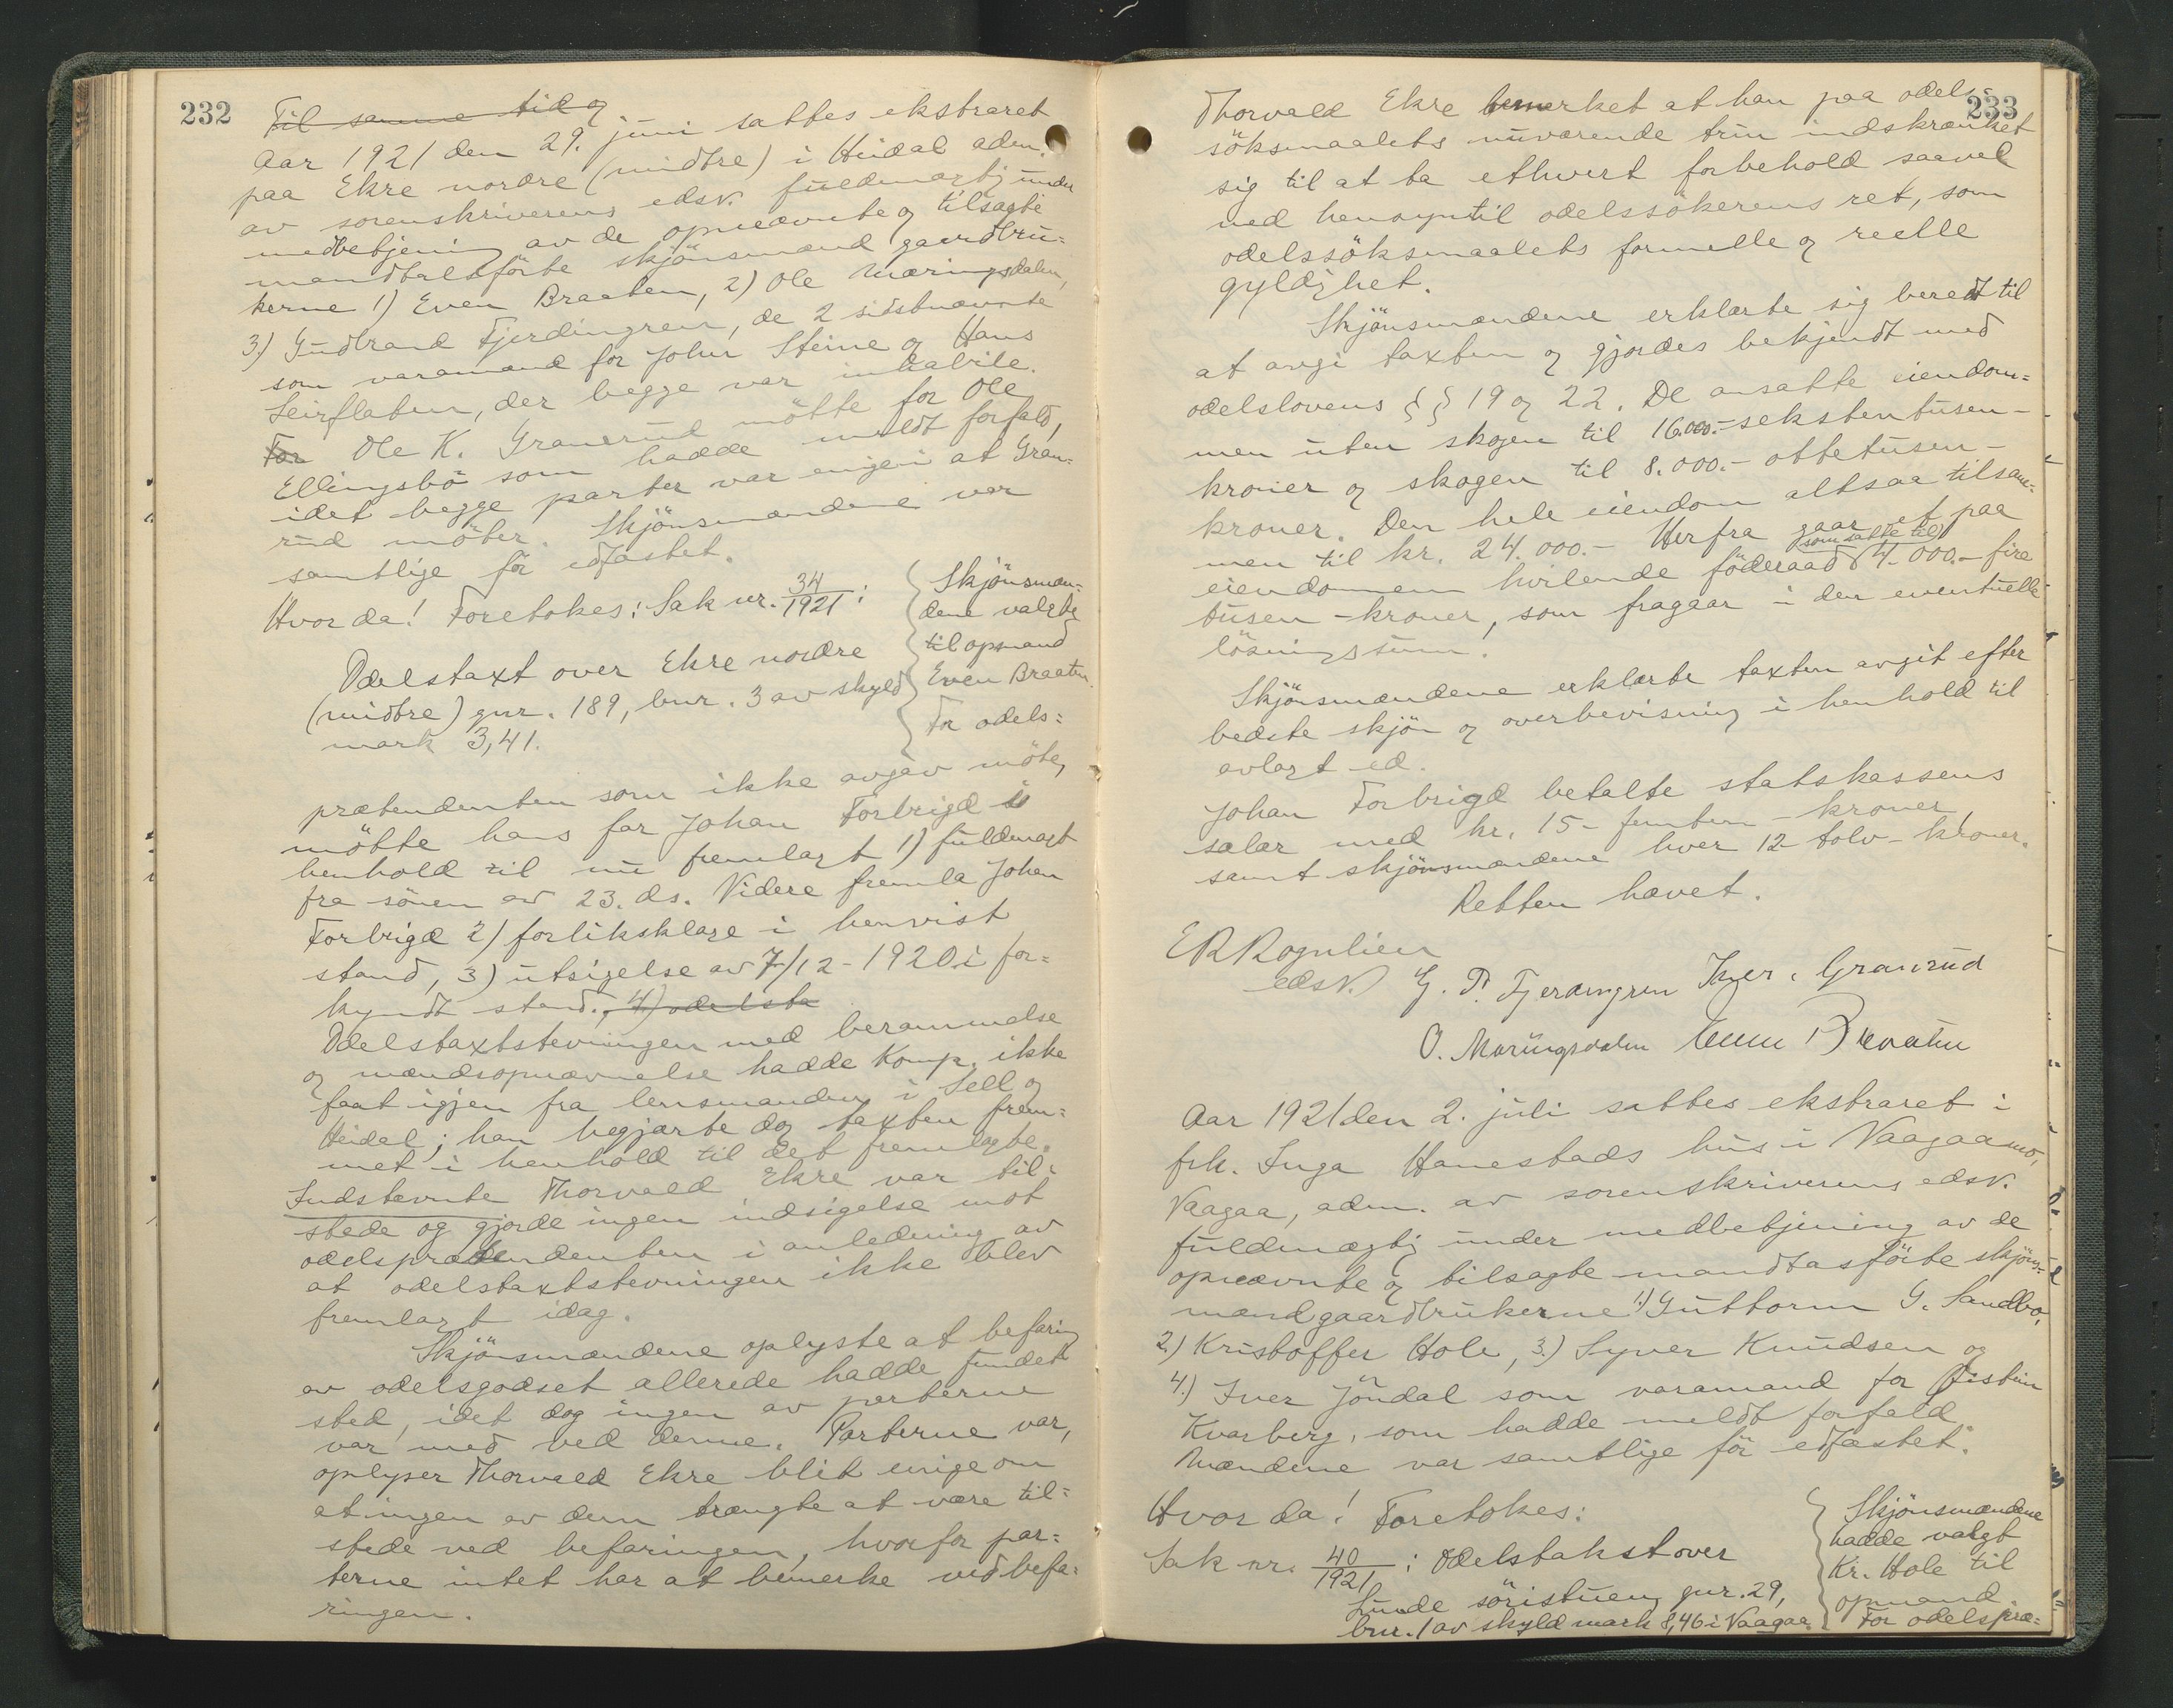 232
Til samme tid og
Aar 1921 den 29. juni sattes ekstraret
paa Ekre nordre (midtre) i Heidal adm.
av sorenskriverens edsv. fuldmægtig under
medbetjening av de opnævnte og tilsagte
mandtalsförte skjönsmænd gaardbru=
kerne 1) Even Braaten, 2) Ole Mæringsdalen,
3.) Gudbrand Fjerdingren, de 2 sidstnævnte
som varamænd for John Steine og Hans
Leirflaten, der begge var inhabile.
For Ole K. Granerud mötte for Ole
Ellingsbö som hadde meldt forfald,
idet begge parter var enige i at Gran=
rud möter. Skjönsmændene var
samtlige för edfæstet.
Hvor da! Foretokes: Sak nr. 34/1921:
Odelstaxt over Ekre nordre
(midtre) gnr. 189, bnr. 3 av skyld
mark 3,41.
Skjönsmæn-
dene valgte
til opmand
Even Braaten.
For odels=
prætendenten som ikke avgav möte,
mötte hans far Johan Forbrigd i
henhold til nu fremlagt 1) fuldmagt
fra sönen av 23. ds. Videre fremla Johan
Forbrigd 2) forliksklage i henvist
stand, 3) utsigelse av 7/12-1920 i for=
kyndt stand., 4) odelsta
Odelstaxtstevningen med berammelse
og mændsopnævnelse hadde Komp. ikke
faat igjen fra lensmanden i Sell og
Heidal; han begjærte dog taxten frem=
met i henhold til det fremlagte.
Indstevnte Thorvald Ekre var til=
stede og gjorde ingen indsigelse mot
odelsprætendenten i anledning av
at odelstaxtstevningen ikke blev
fremlagt idag.
Skjönsmændene oplyste at befaring
av odelsgodset allerede hadde fundet
sted, idet dog ingen av parterne
var med ved denne. Parterne var,
oplyser Thorvald Ekre blit enige om
at ingen av dem trængte at være til=
stede ved befaringen, hvorfor par=
terne intet har at bemerke ved befa=
ringen.
233
Thorvald Ekre bemerket at han paa odels-
söksmaalets nuværende trin indskrænket
sig til at ta ethvert forbehold saavel
med hensyn til odelssökerens ret, som
odelssöksmaalets formelle og reelle
gyldighet.
Skjönsmændene erklærte sig beredt til
at avgi taxten og gjordes bekjendt med
odelslovens §§ 19 og 22. De ansatte eiendom=
men uten skogen til 16.000.- seksten tusen-
kroner og skogen til 8.000.- ottetusen-
kroner. Den hele eiendom altsaa tilsam=
men til kr. 24.000.- Herfra gaar et paa
eiendommen hvilende föderaad som sattes til 4.000.- fire
tusen-kroner, som fragaar i den eventuelle
lösningssum!
Skjönsmændene erklærte taxten avgit efter
bedste skjön og overbevisning i henhold til
avlagt ed.
Johan Forbrigd betalte statskassens
salær med kr. 15- femten - kroner
samt skjönsmændene hver 12 tolv- kroner.
Retten hævet.
ER Rognlien
edsv. G. P. Fjerdingren Iver. Granrud
O. Mæringsdalen Even Braaten
Aar 1921 den 2. juli sattes ekstraret i
frk. Inga Hanestads hus i Vaagaamo,
Vaagaa, adm. av sorenskriverens edsv.
fuldmægtig under medbetjening av de
opnævnte og tilsagte mandtalsförte skjöns=
mænd gaardbrukerne 1.) Guttorm G. Sandbo,
2.) Kristoffer Hole, 3.) Syver Knudsen og
4.) Iver Jöndal som varamand for Eistein
Kvarberg, som hadde meldt forfald.
Mændene var samtlige för edfæstet.
Hvor da! Foretokes:
Sak nr. 40/1921: Odelstakst over
Sunde söristuen gnr. 29,
bnr. 1 av skyld mark 8,46 i Vaagaa.
Skjönsmændene
hadde valgt
Kr. Hole til
opmand
For odelspræ=